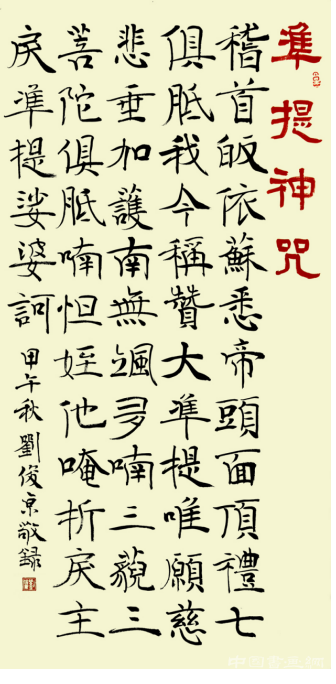 準提神咒
稽首皈依蘇悉帝頭面頂禮七
俱胝我今稱讚大準提唯願慈
悲垂加護南無颯多喃三藐三
菩陀俱胝喃怛姪他唵折戾主
戾準提娑婆訶
甲午秋劉俊京敬録